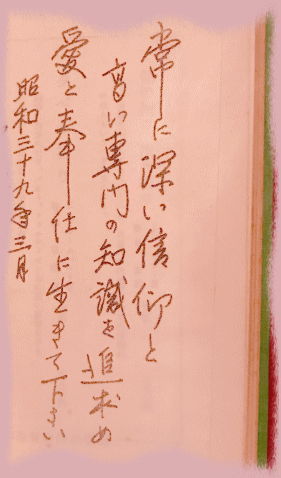 常に深い信仰と
高い専門の知識を追求め
愛と奉仕に生きて下さい
昭和三十九年三月